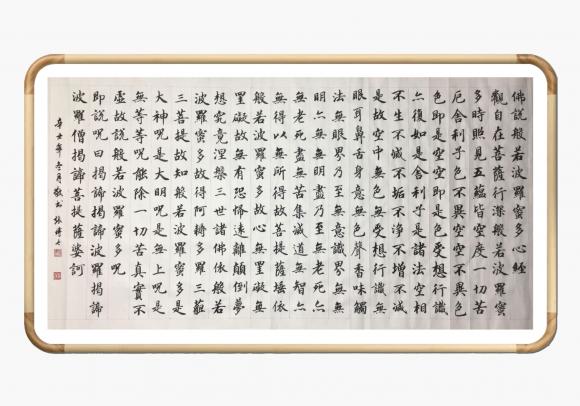 佛說般若波羅蜜多心經
觀自在菩薩行深般若波羅蜜
多時照見五蘊皆空度一切苦
厄舍利子色不異空空不異色
色即是空空即是色受想行識
亦復如是舍利子是諸法空相
不生不滅不垢不淨不增不減
是故空中無色無受想行識無
眼耳鼻舌身意無色聲香味觸
法無眼界乃至無意識界無無
明亦無無明盡乃至無老死亦
無老死盡無苦集滅道無智亦
無得以無所得故菩提薩埵依
般若波羅蜜多故心無罣礙無
罣礙故無有恐怖遠離顛倒夢
想究竟涅槃三世諸佛依般若
波羅蜜多故得阿耨多羅三藐
三菩提故知般若波羅蜜多是
大神呪是大明呪是無上呪是
無等等呪能除一切苦真實不
虛故說般若波羅蜜多呪
即說呪曰揭諦揭諦波羅揭諦
波羅僧揭諦菩提薩婆訶
年冬月敬書張